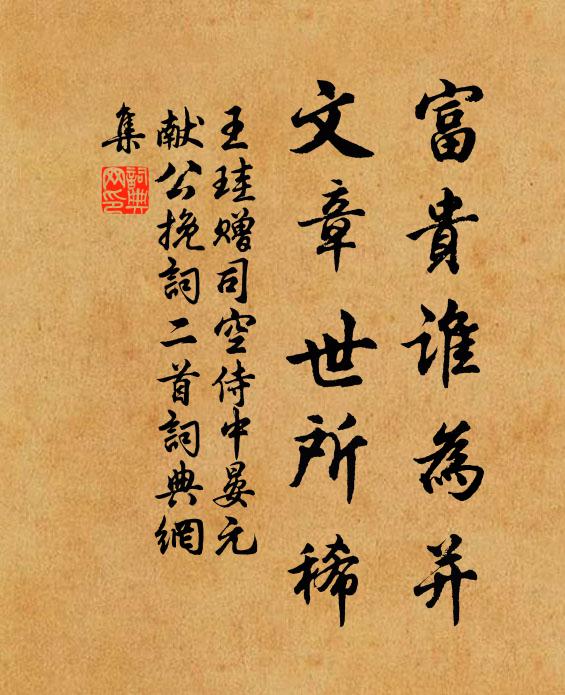 富貴誰為并
文章世所稀
王珪贈司空侍中晏元
献公挽詞二首詞典網
集
詞典
网印